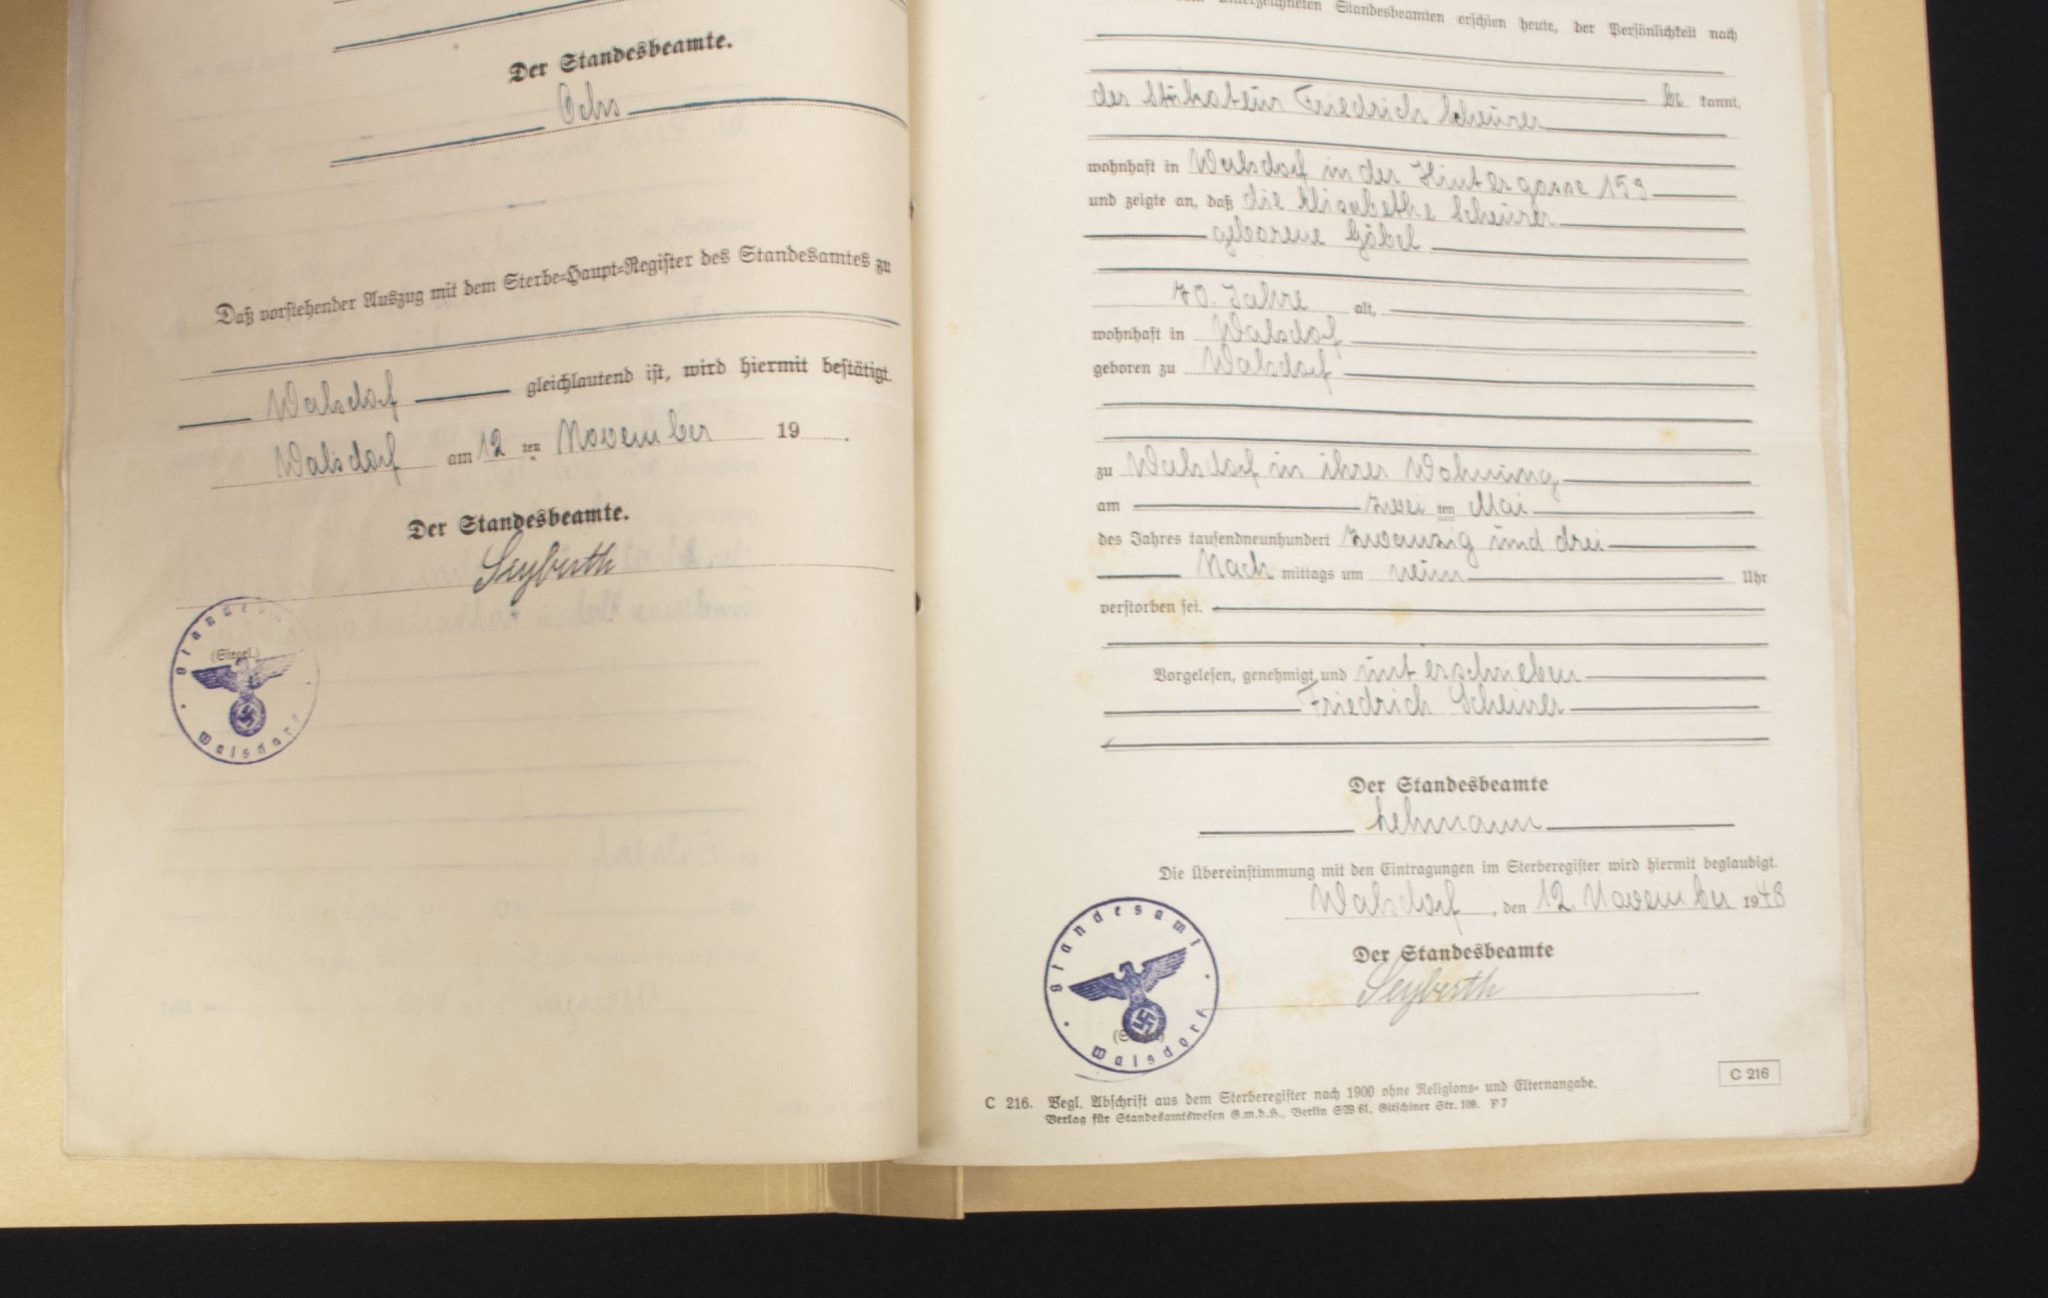 Der Standesbeamte.
Ochs
Daß vorstehender Auszug mit dem Sterbe-Haupt-Register des Standesamtes zu
Walsdorf gleichlautend ist, wird hiermit bestätigt.
Walsdorf am 12 ten November 19 .
Der Standesbeamte.
Seyberth
(Siegel.)
Standes
Walsdorf
unterzeichneten Standesbeamten erschien heute, der Persönlichkeit nach
be kannt,
der Friedrich Scheurer
wohnhaft in Walsdorf in der Hintergasse 153
und zeigte an, daß die Elisabethe Scheurer
geborene Göbel
70. Jahre alt,
wohnhaft in Walsdorf
geboren zu Walsdorf
zu Walsdorf in ihrer Wohnung
am zwei ten Mai
des Jahres tausendneunhundert zwanzig und drei
Nach mittags um neun Uhr
verstorben sei.
Vorgelesen, genehmigt und unterschrieben
Friedrich Scheurer
Der Standesbeamte
Lehmann
Die Übereinstimmung mit den Eintragungen im Sterberegister wird hiermit beglaubigt.
Walsdorf, den 12. November 19
Der Standesbeamte
Seyberth
Standesamt
Walsdorf
C 216. Begl. Abschrift aus dem Sterberegister nach 1900 ohne Religions- und Elternangabe.
Verlag für Standesamtswesen G.m.b.H., Berlin SW 61, Gitschiner Str. 109. F 7
C 216